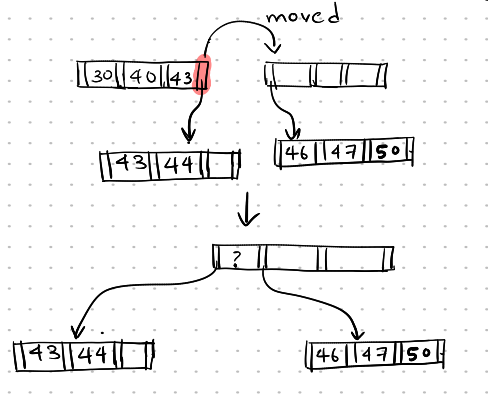 moved
30 40 43
43 44
46 47 50
?
43 44
46 47 50